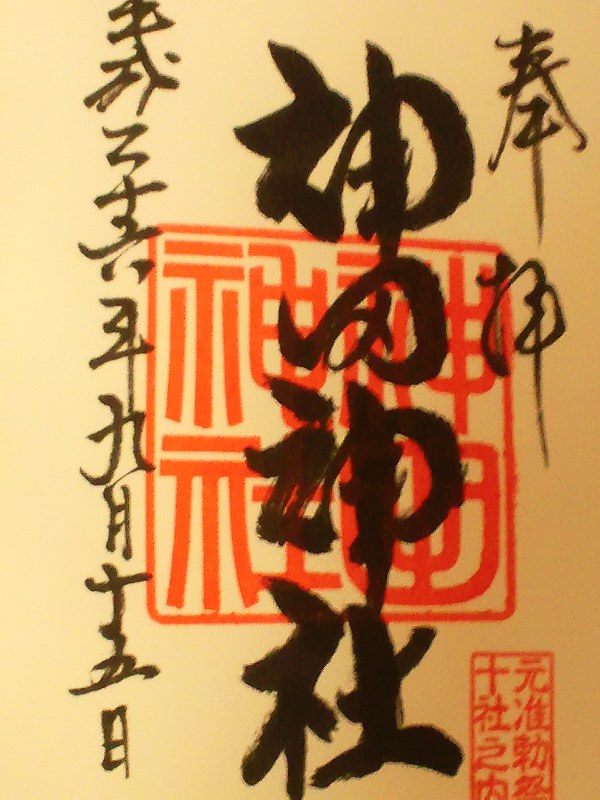 奉拝
神田神社
神田
神社
平成二十六年九月十五日
元准勅祭
十社之内